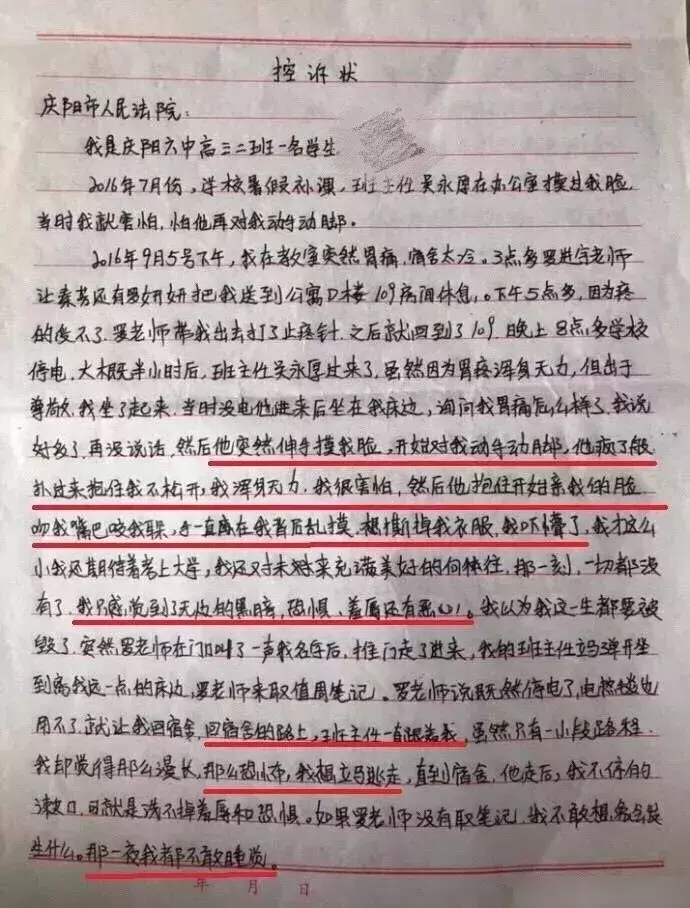 控诉状
庆阳市人民法院：
我是庆阳六中高三二班一名学生
2016年7月份，学校暑假补课，班主任吴永厚在办公室摸过我脸
当时我就害怕，怕他再对我动手动脚。
2016年9月5号下午，我在教室突然胃痛，宿舍太冷。3点多罗进宇老师
让秦芳还有罗妍妍把我送到公寓D楼109房间休息。下午5点多，因为疼
的受不了，罗老师带我出去打了止疼针，之后就回到了109，晚上8点多学校
停电，大概半小时后，班主任吴永厚过来了，虽然因为胃疼浑身无力，但出于
尊敬，我坐了起来，当时没电他进来后坐在我床边，询问我胃痛怎么样了，我说
好多了，再没说话，然后他突然伸手摸我脸，开始对我动手动脚，他疯了般
扑过来抱住我不松开，我浑身无力，我很害怕，然后他抱住开始亲我的脸
吻我嘴巴咬我耳朵，手一直在我背后乱摸，想撕掉我衣服，我吓懵了，我才这么
小我还期待着考上大学，我还对未来充满美好的向往，那一刻，一切都没
有了，我只感觉到了无边的黑暗，恐惧，羞辱还有恶心。我以为我这一生都要被
毁了，突然罗老师在门口叫了一声我名字后，推门走了进来，我的班主任立马弹开坐
到离我远一点的床边，罗老师来取值周笔记。罗老师说既然停电了，电热毯也
用不了，就让我回宿舍，回宿舍的路上，班主任一直跟着我，虽然只有一小段路程
我却觉得那么漫长，那么恐怖，我想立马逃走，直到宿舍，他走后，我不停的
漱口，可就是洗不掉羞辱和恐惧。如果罗老师没有取笔记，我不敢想象会发
生什么。那一夜我都不敢睡觉。
年 月 日